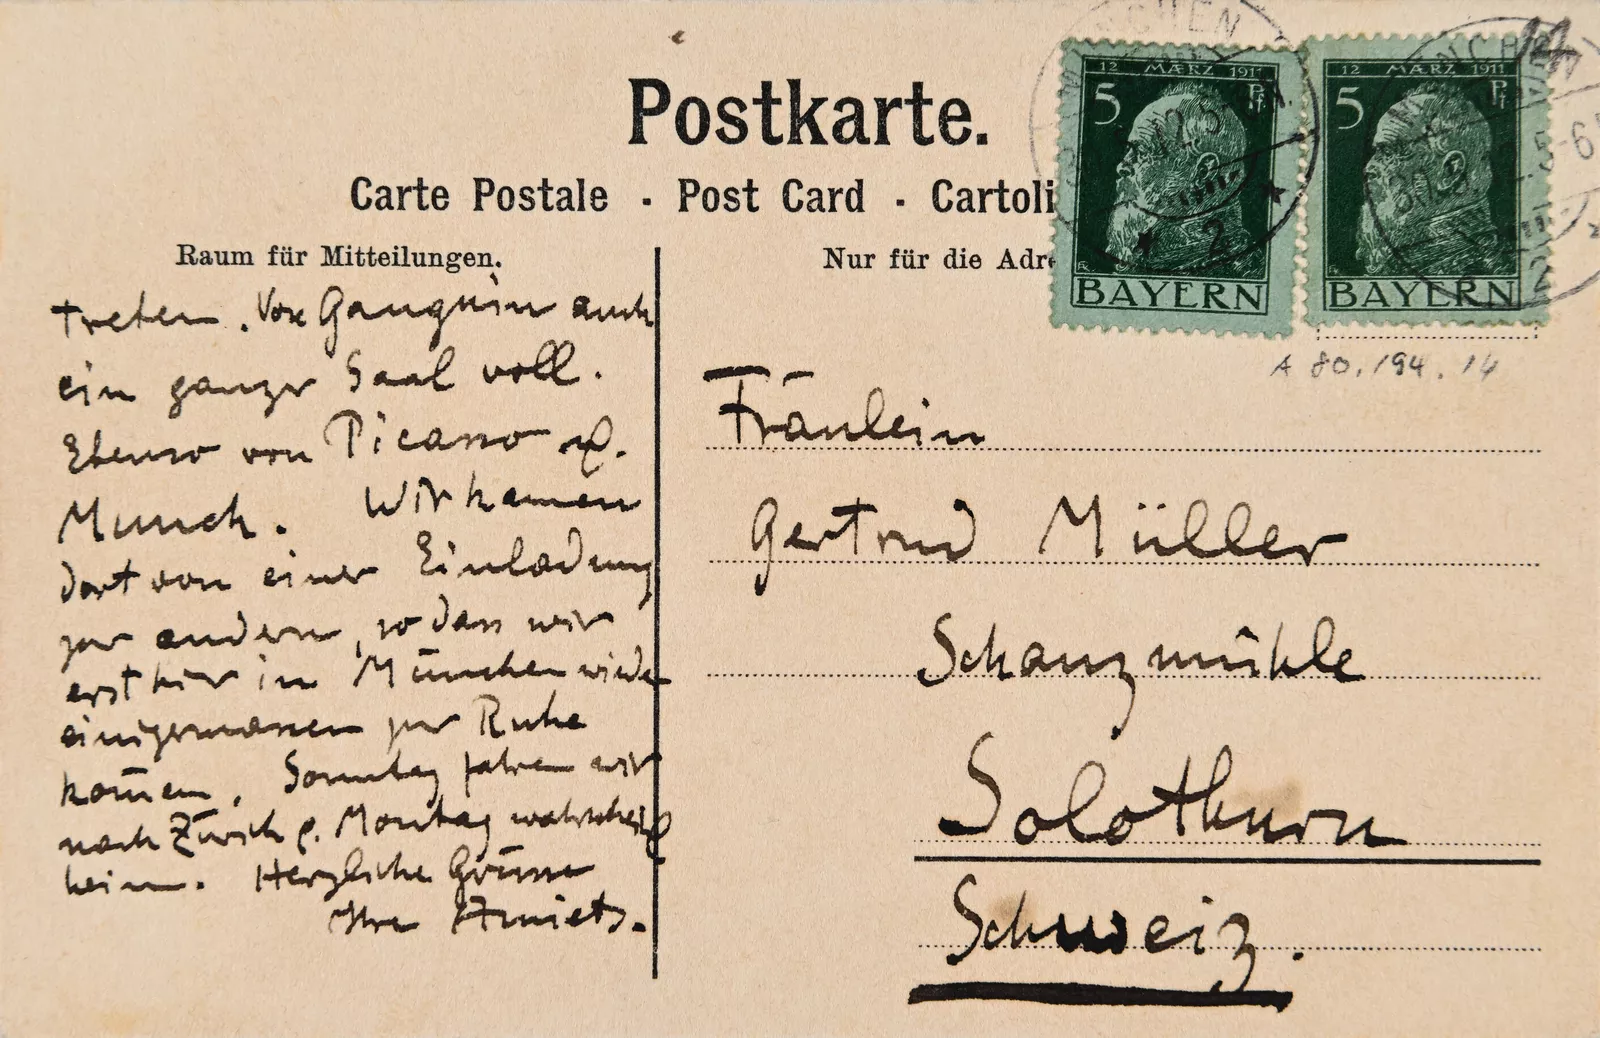 Postkarte.
Carte Postale . Post Card . Cartoli
Raum für Mitteilungen.
Nur für die Adre
12 MÆRZ 1911
5 Pf
BAYERN
12 MÆRZ 1911
5 Pf
BAYERN
A 80.194.14
treten. Von Gauguin auch
ein ganzer Saal voll.
Ebenso von Picasso &.
Munch. Wir kamen
dort von einer Einladung
zur andern, so dass wir
erst hier in München wieder
einigermassen zur Ruhe
kom̄en. Sonntag fahren wir
nach Zürich &. Montag wahrscheinl
heim. Herzliche Grüsse
Ihre Amiets.
Fräulein
Gertrud Müller
Schanzmühle
Solothurn
Schweiz.